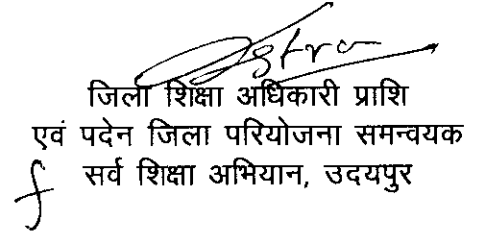 जिला शिक्षा अधिकारी प्राशि
एवं पदेन जिला परियोजना समन्वयक
सर्व शिक्षा अभियान, उदयपुर